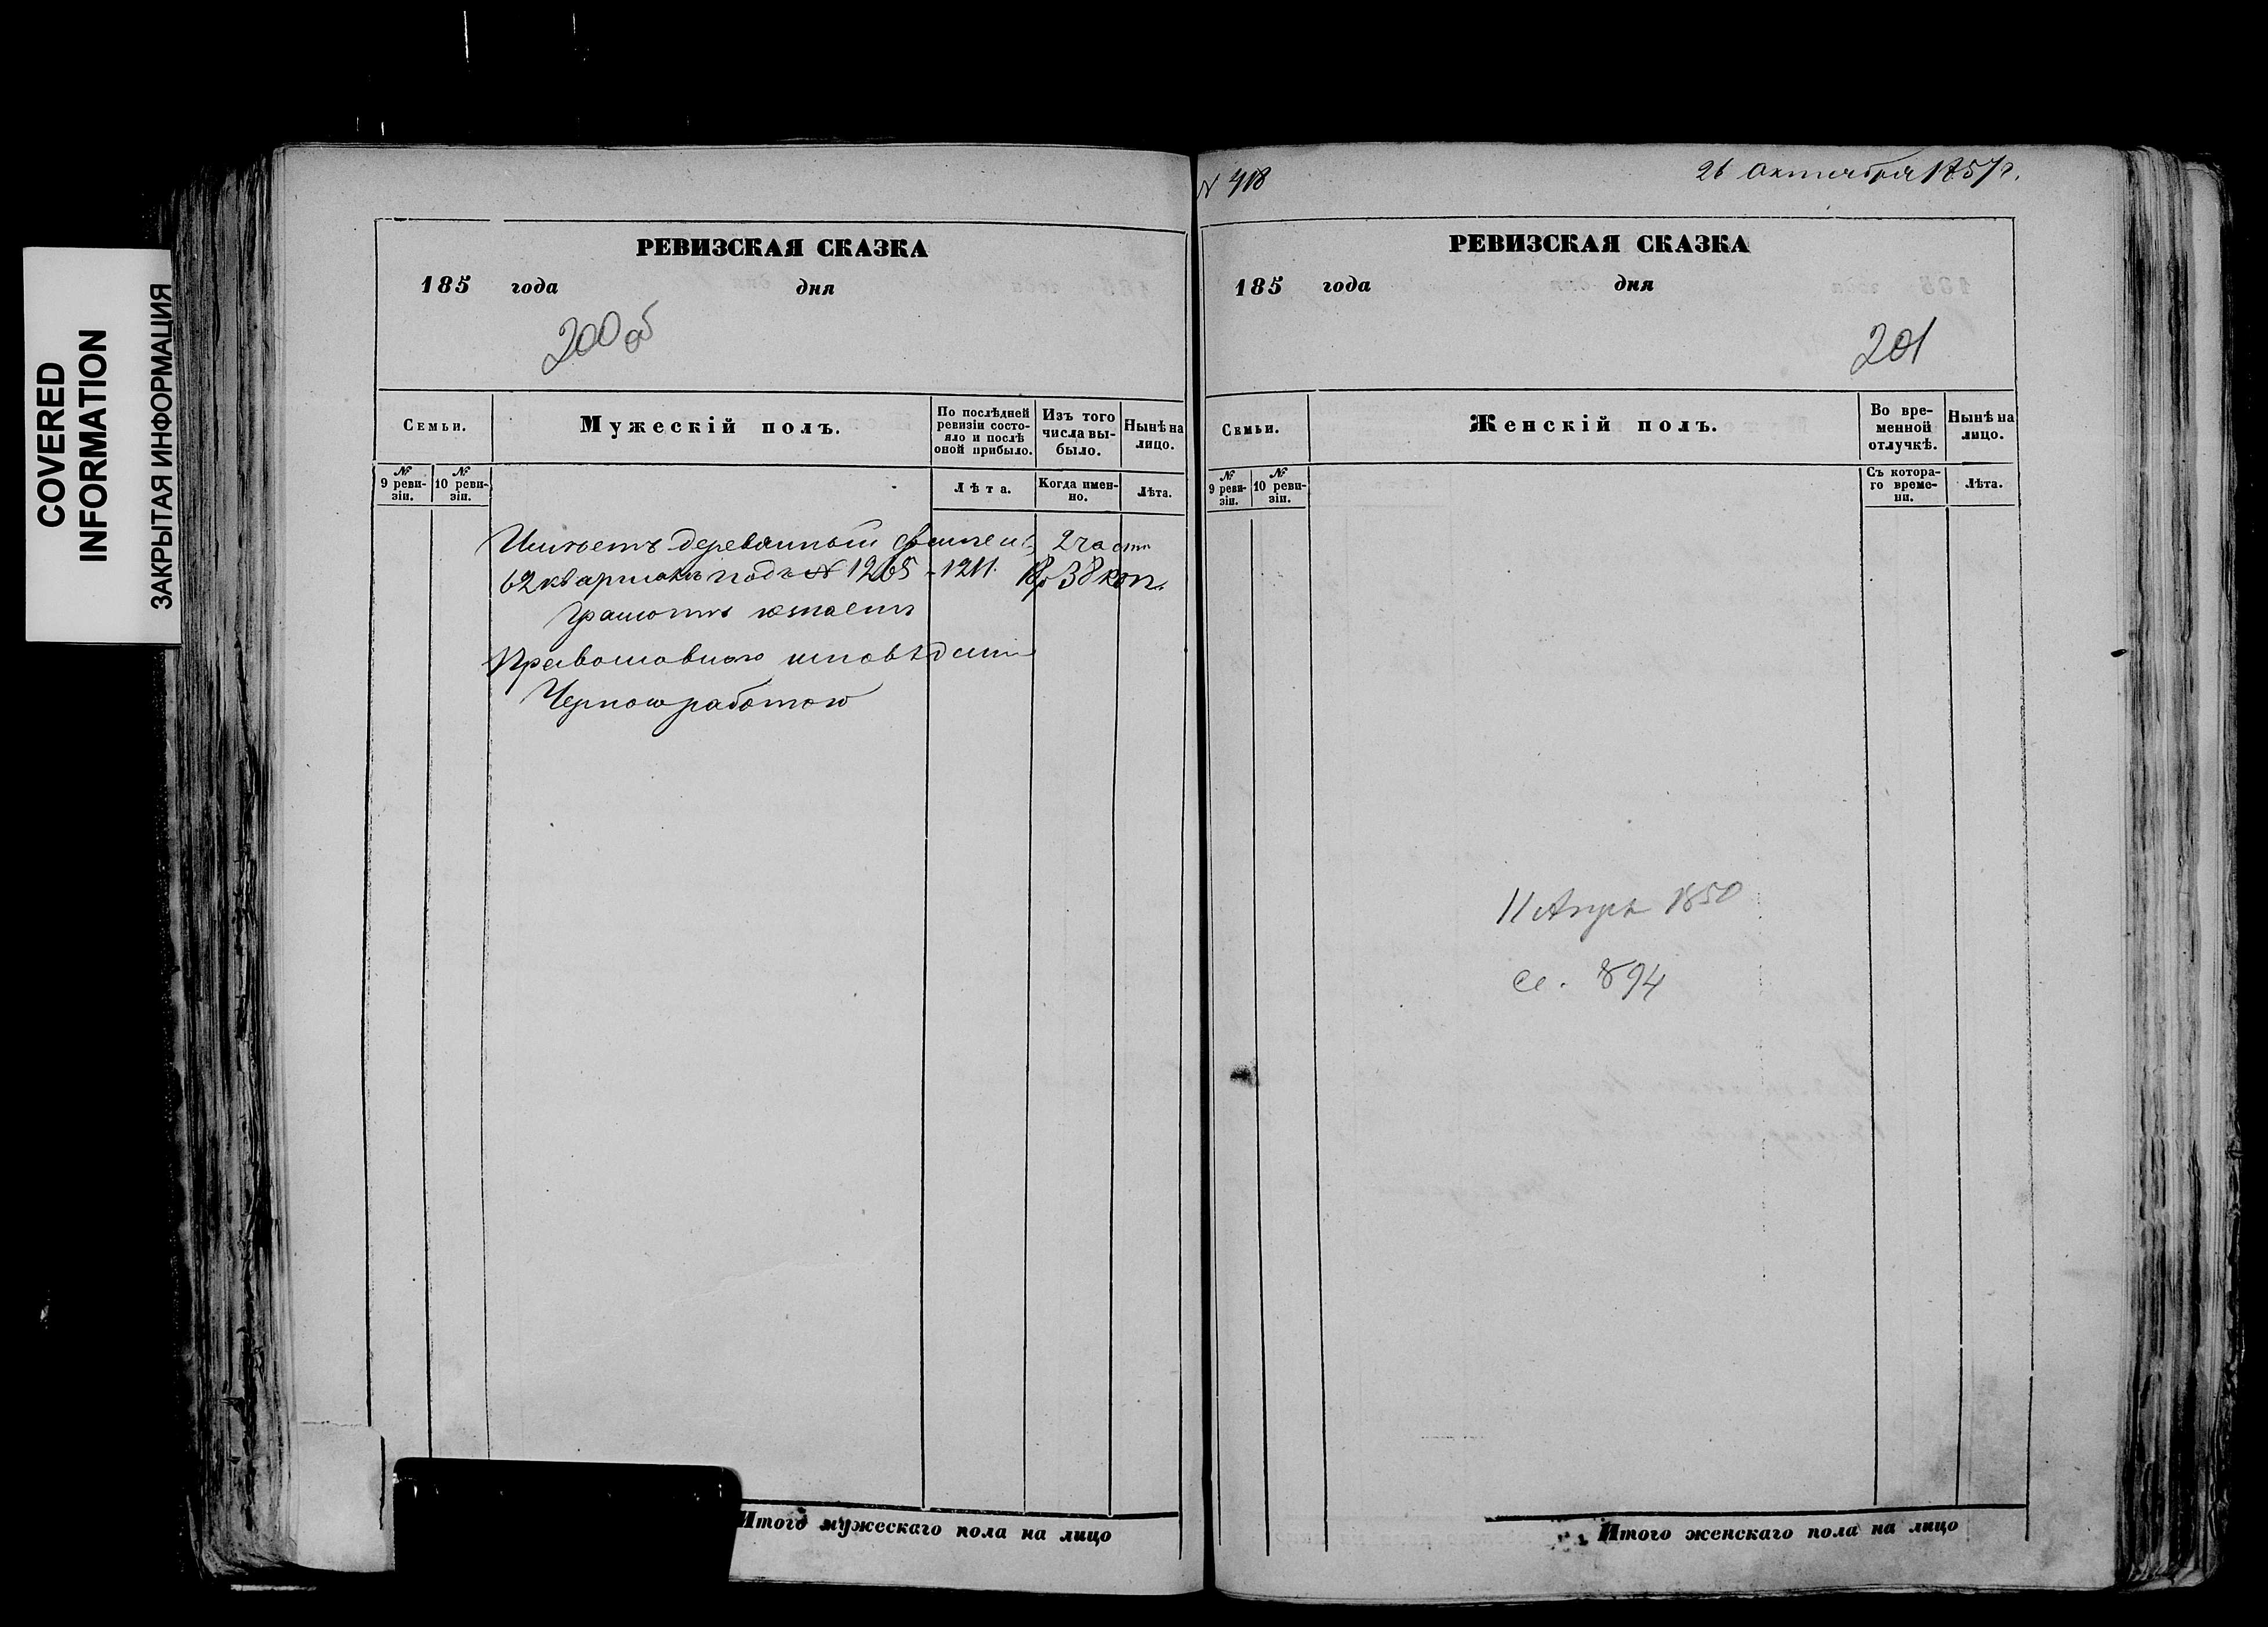 COVERED
INFORMATION
ЗАКРЫТАЯ ИНФОРМАЦИЯ
РЕВИЗСКАЯ СКАЗКА
185 года дня
200 об
Семьи.
Мужескій полъ.
По послѣдней ревизіи состояло и послѣ оной прибыло.
Изъ того числа выбыло.
Нынѣ на лицо.
№ 9 ревизіи.
№ 10 ревизіи.
Лѣта.
Когда именно.
Лѣта.
Имѣетъ деревянный 2 части
62 квартала подъ № 1265 - 1211. 38 коп.
Грамотѣ
Православнаго исповѣданія
Черною работою
Итого мужескаго пола на лицо
N 418
26 Октября 1857 г.
РЕВИЗСКАЯ СКАЗКА
185 года дня
201
Семьи.
Женскій полъ.
Во временной отлучкѣ.
Нынѣ на лицо.
№ 9 ревизіи.
№ 10 ревизіи.
Съ котораго времени.
Лѣта.
11 Апр 1850
894
Итого женскаго пола на лицо